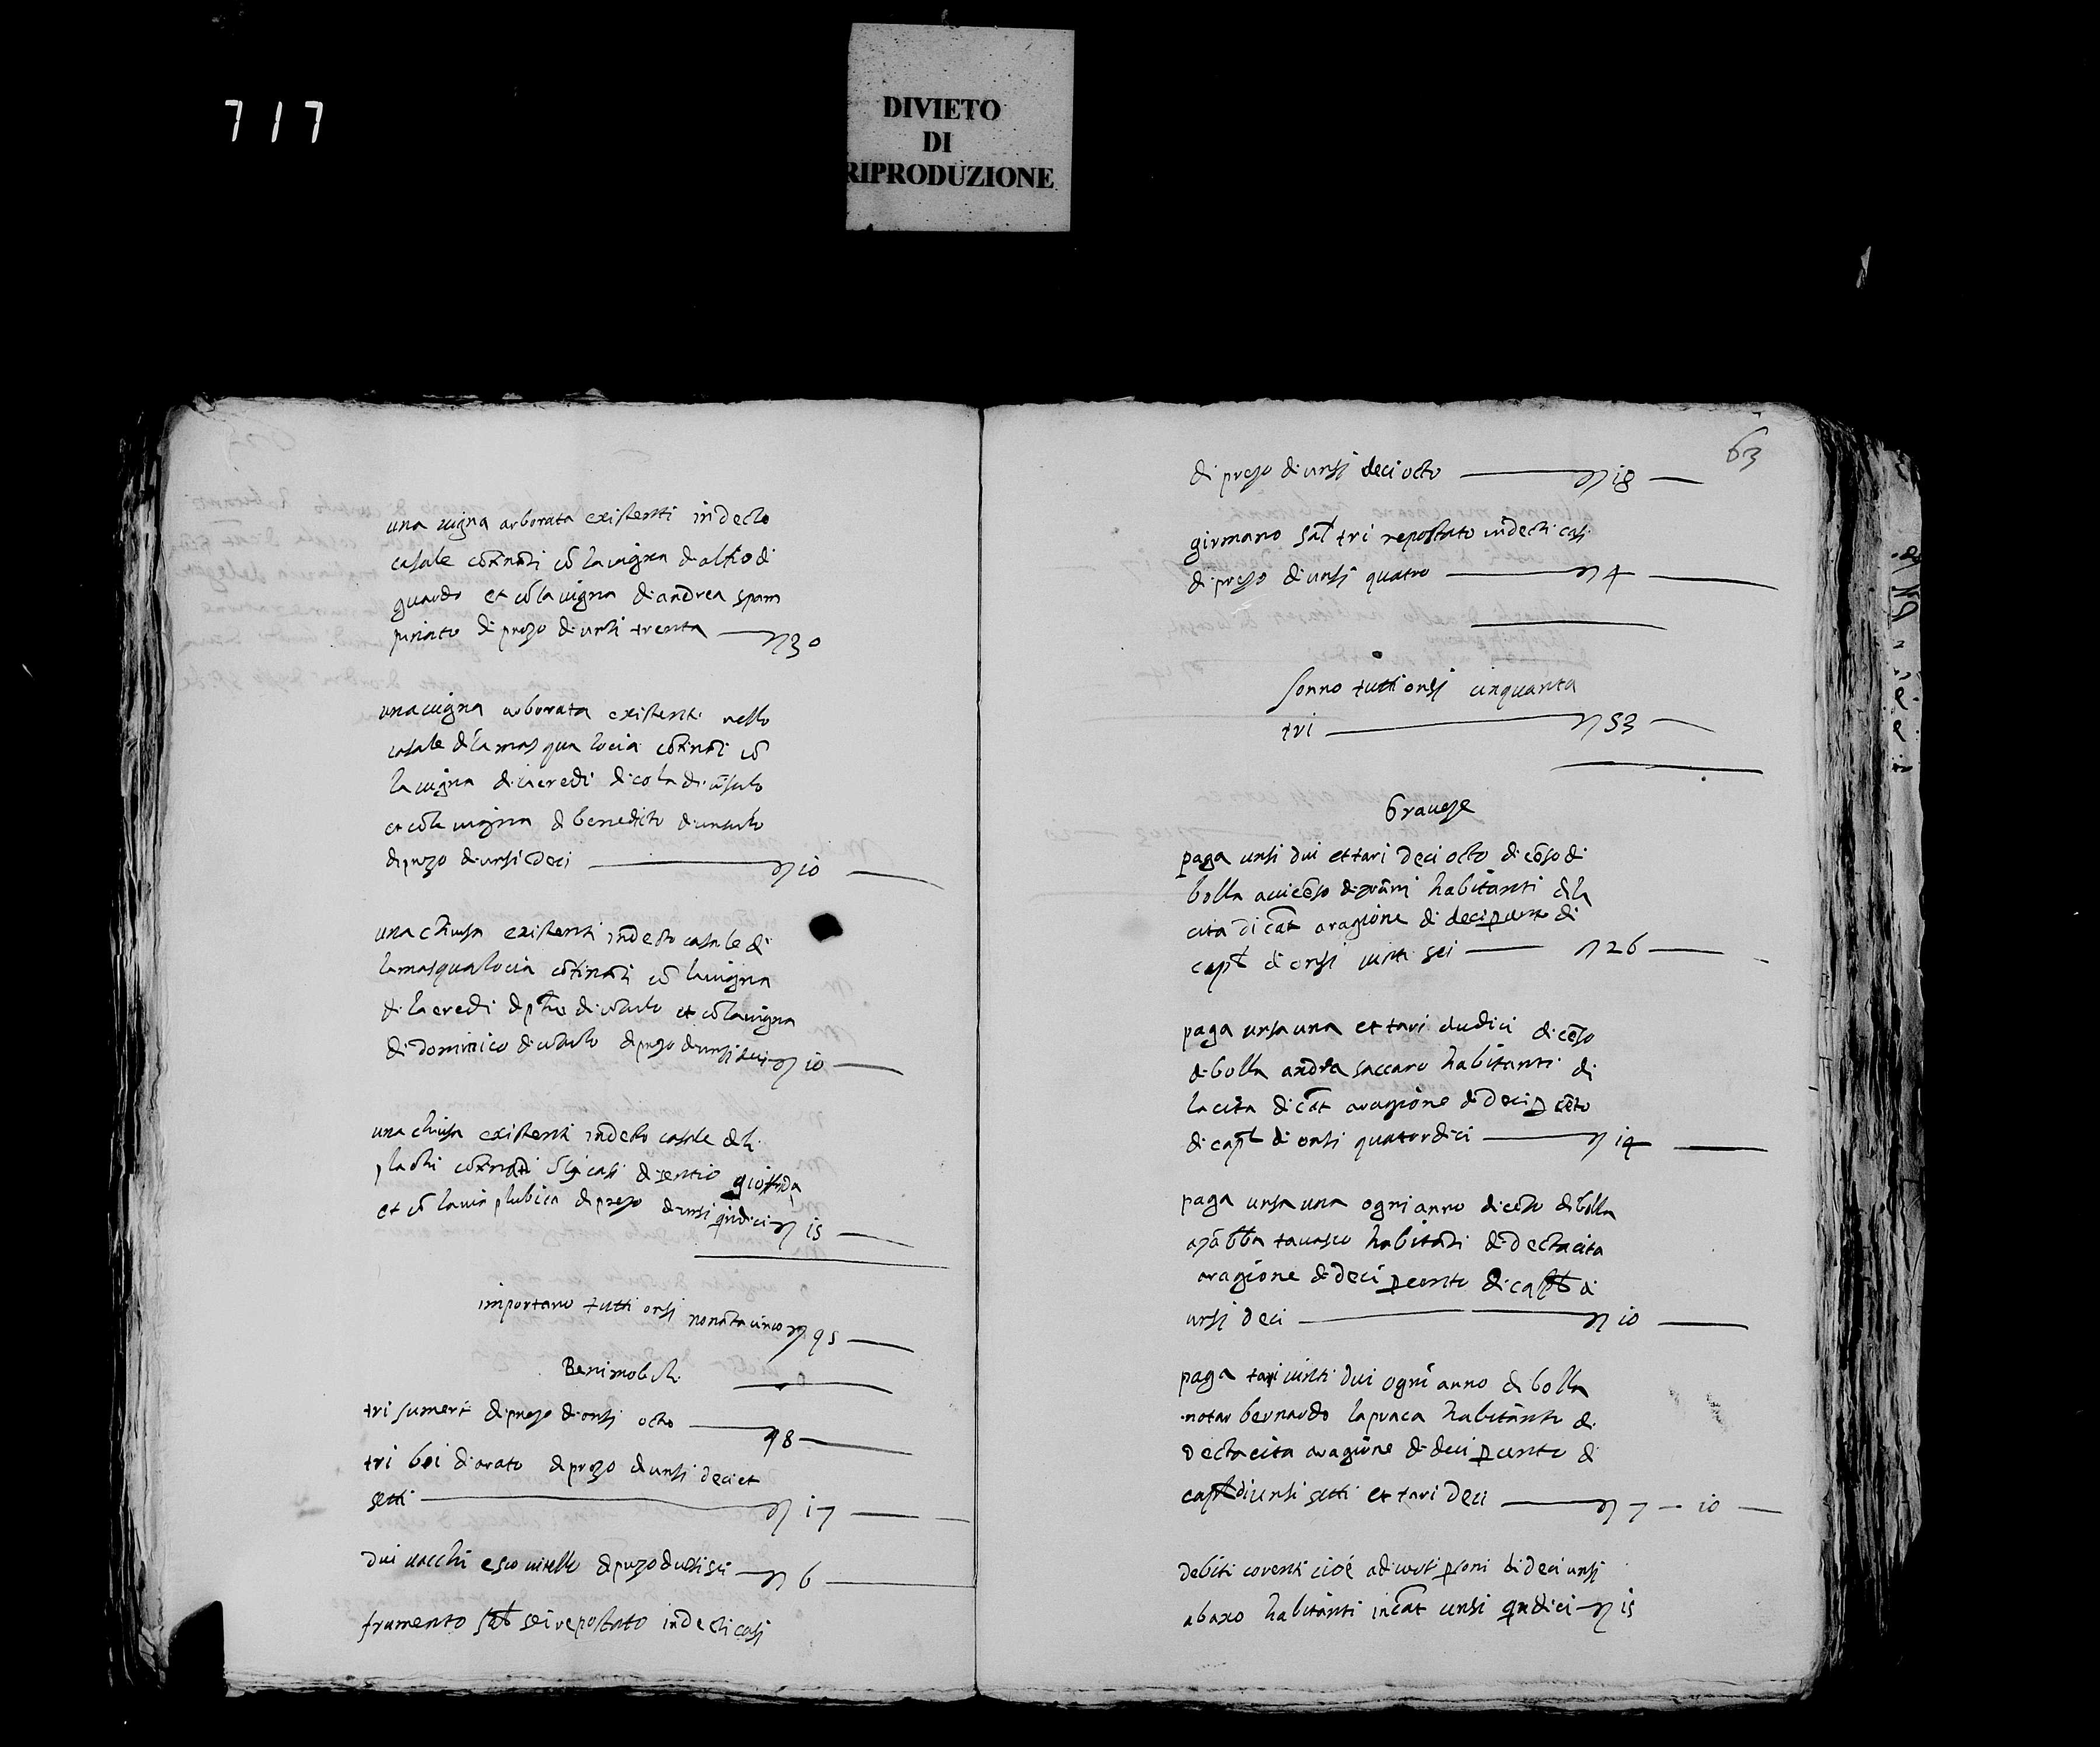 717
DIVIETO
DI
RIPRODUZIONE
una vigna arborata existenti in decto
casale cōfināti cō la vigna di alfio di
guardo et cō la vigna di andrea spam
pinato di prezo di unsi trenta 30
una vigna arborata existenti nello
casale di la masqua locia cōfināti cō
la vigna di la eredi di cola di
et cō la vigna di benedicto di
di prezo di unsi deci 10
una chiusa existenti in decto casale di
la masqua locia cōfināti cō la vigna
di la eredi di di et cō la vigna
di dominico di di prezo di unsi deci 10
una chiusa existenti in decto casale di li
plachi cōfināti cō li casi di
et cō la via plubica di prezo di unsi qindici 15
importano tutti onsi nonāta cinco 95
Beni mobili
tri sumeri di prezo di onsi octo 8
tri boi di arato di prezo di unsi deci et
setti 17
dui vacchi e sco vitello di prezo di unsi sei 6
frumento sal sei repostato in decti casi
63
di prezo di unsi deci octo 18
girmano sal tri repostato in decti casi
di prezo di unsi quatro 4
sonno tutti onsi cinquanta
tri 53
Graveze
paga unsi dui et tari deci octo di cēso di
bolla a vicēso di habitanti di la
cita di cat a ragione di deci p cento di
capl di onsi vinti sei 26
paga unsa una et tari dudici di cēso
di bolla andria saccaro habitanti di
la cita di cat a ragione di deci p cēto
di capl di onsi quatordici 14
paga unsa una ogni anno di cēso di bolla
a habitāti di decta cita
a ragione di deci p cento di capl di
unsi deci 10
paga tari vinti dui ogni anno di bolla
notar bernardo habitānti di
decta cita a ragione di deci p cento di
capl di unsi setti et tari deci 7 10
debiti correnti cioé a diversi psoni di deci unsi
abaxo habitanti in cat unsi qndici 15